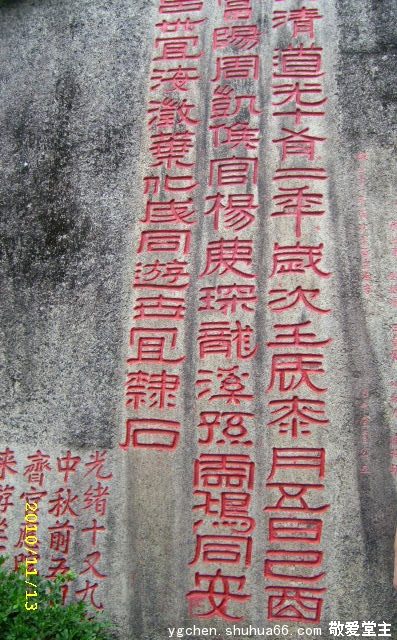 清道光十有二年歲次壬辰桼月五日己酉
富陽周凱侯官楊慶琛龍溪孫雲鴻同安
世宜海澂葉化成同遊世宜隸石
光緒十又九
中秋前五日
齊官
來游
2010/11/13
ygchen.shuhua66.com 敬爱堂主